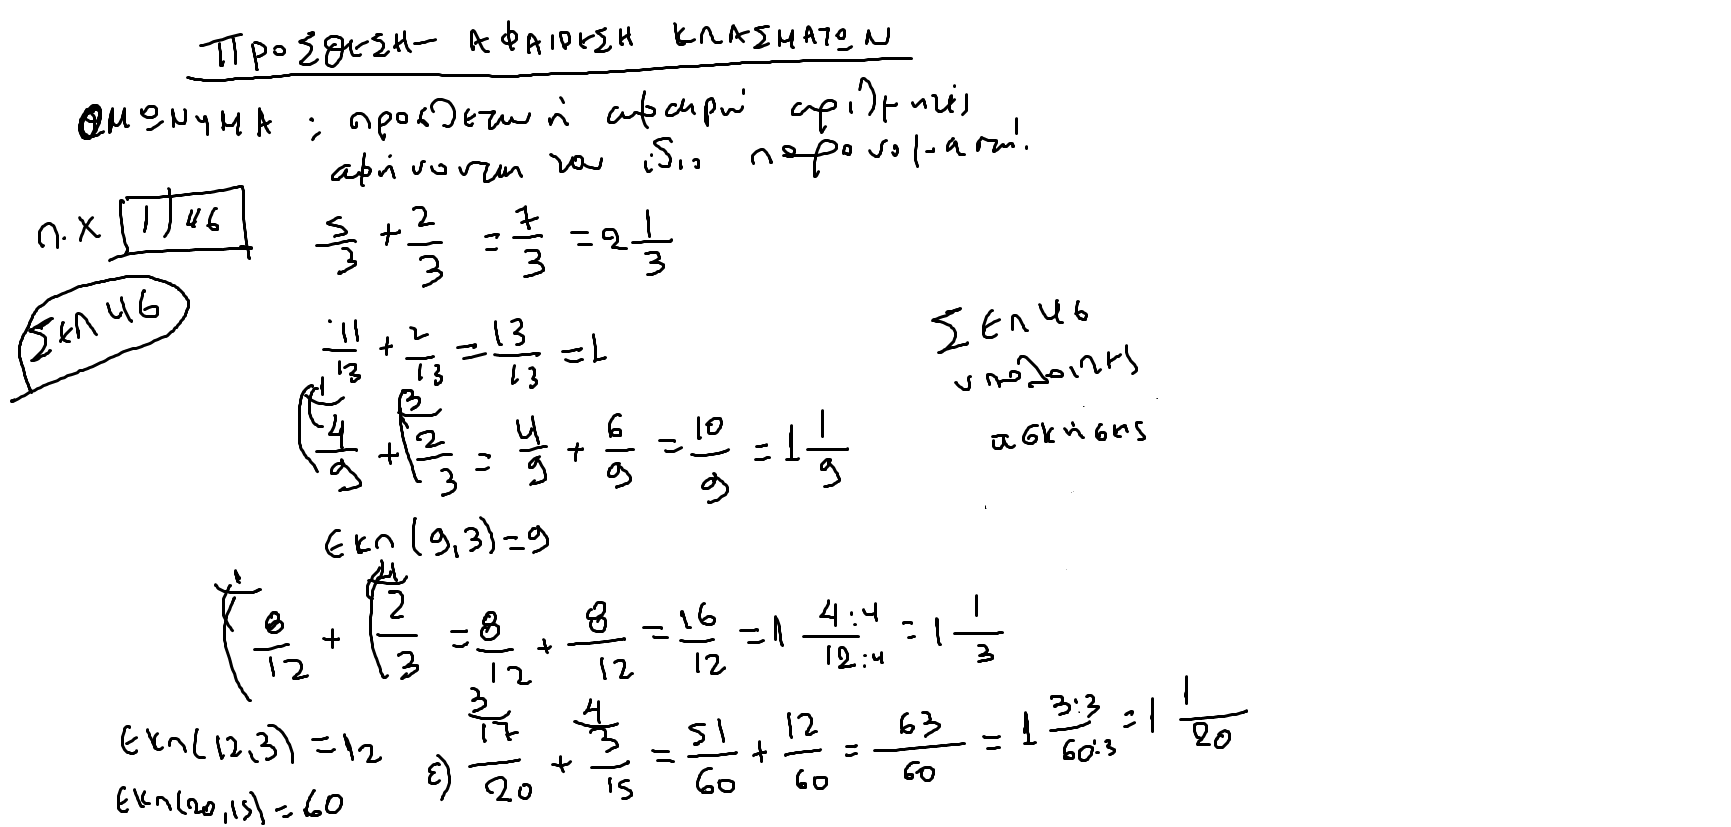 ΠΡΟΣΘΕΣΗ- ΑΦΑΙΡΕΣΗ ΚΛΑΣΜΑΤΩΝ
ΟΜΩΝΥΜΑ : προσθετω ή αφαιρώ αριθμητές
αφήνοντας τον ίδιο παρονομαστή!
π.χ 1) 46 5/3 + 2/3 = 7/3 = 2 1/3
Σελ 46
11/13 + 2/13 = 13/13 = 1
4/9 + 2/3 = 4/9 + 6/9 = 10/9 = 1 1/9
Σελ 46
υπολοιπες
ασκήσεις
ΕΚΠ (9,3)=9
8/12 + 2/3 = 8/12 + 8/12 = 16/12 = 1 4:4/12:4 = 1 1/3
ΕΚΠ(12,3) = 12
ε) 17/20 + 3/15 = 51/60 + 12/60 = 63/60 = 1 3:3/60:3 = 1 1/20
ΕΚΠ(20,15) = 60